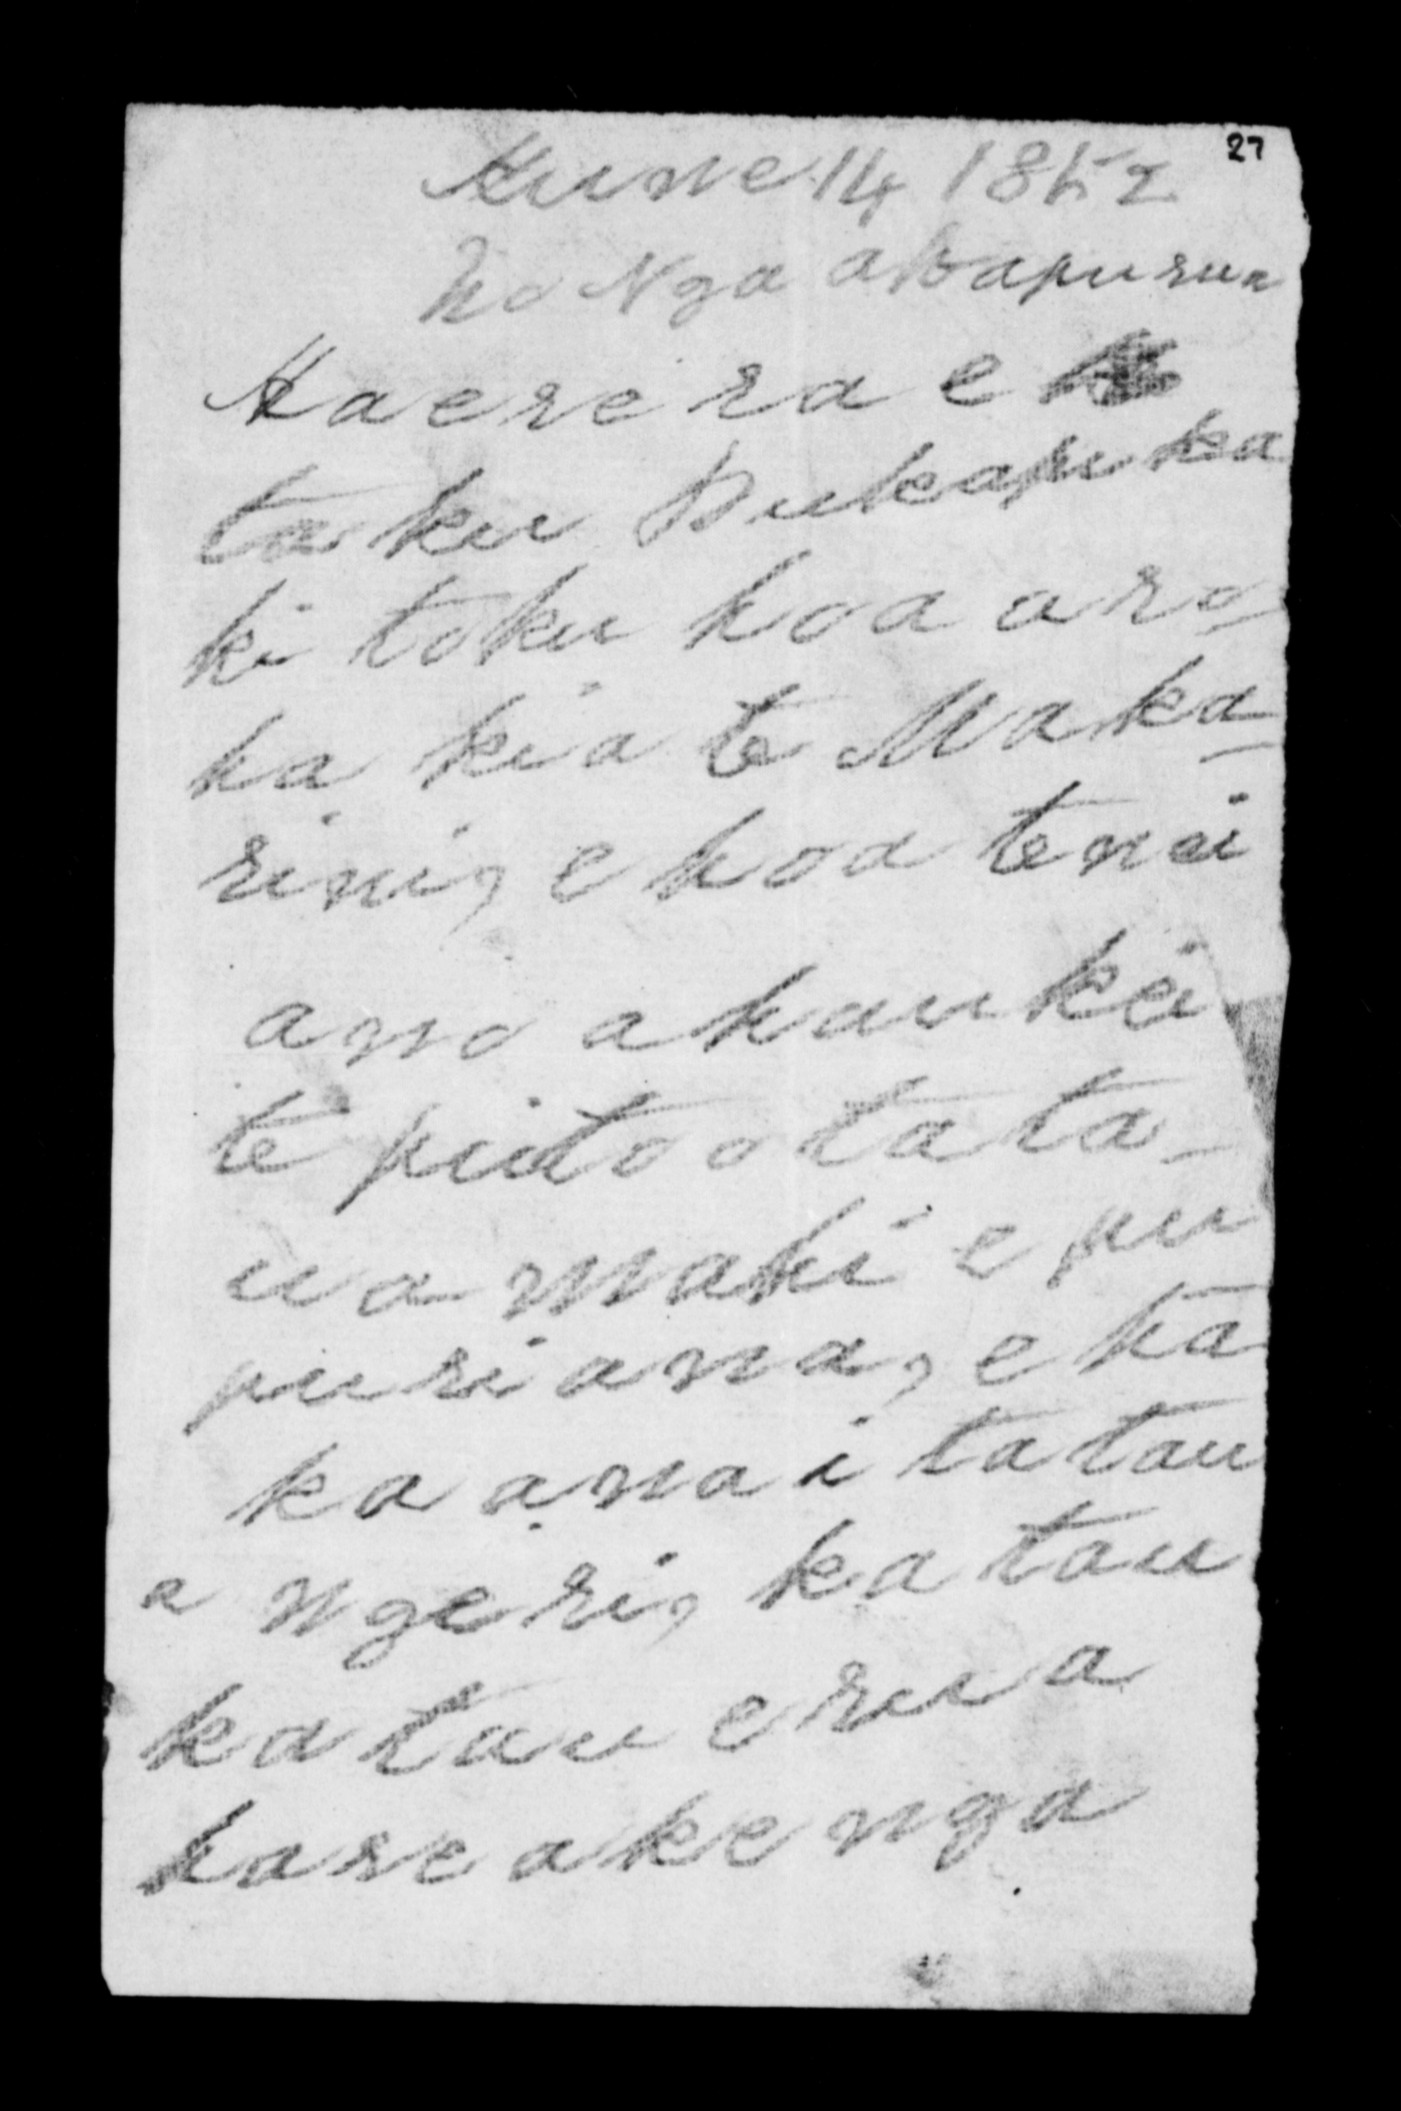 27
Hune 14 1852
No Nga
Haere ra e
taku Pukapuka
ki toku hoa aro-
ha kia te Maka-
rini, e hoa tenei
ano ahau kei
te piito o ta ta-
ua mahi e pu
puri ana, e ha
ka ana i ta tau
a ngeri, ka tau
ka tau e rua
hare ake nga